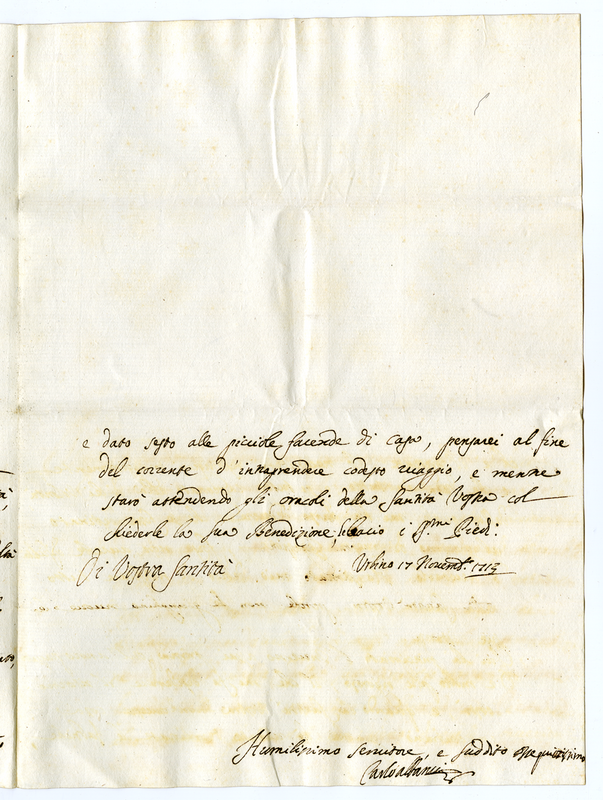 e dato sesto alle picciole facende di casa, pensarei al fine
del corrente d'intraprendere codesto viaggio, e mentre
starò attendendo gli oracoli della Santità Vostra col
chiederle la sua Benedizione, li bacio i S.mi Piedi.
Di Vostra Santità
Urbino 17 Novemb. 1713
Humilissimo servitore, e suddito ossequiosissimo
Carlo Albani